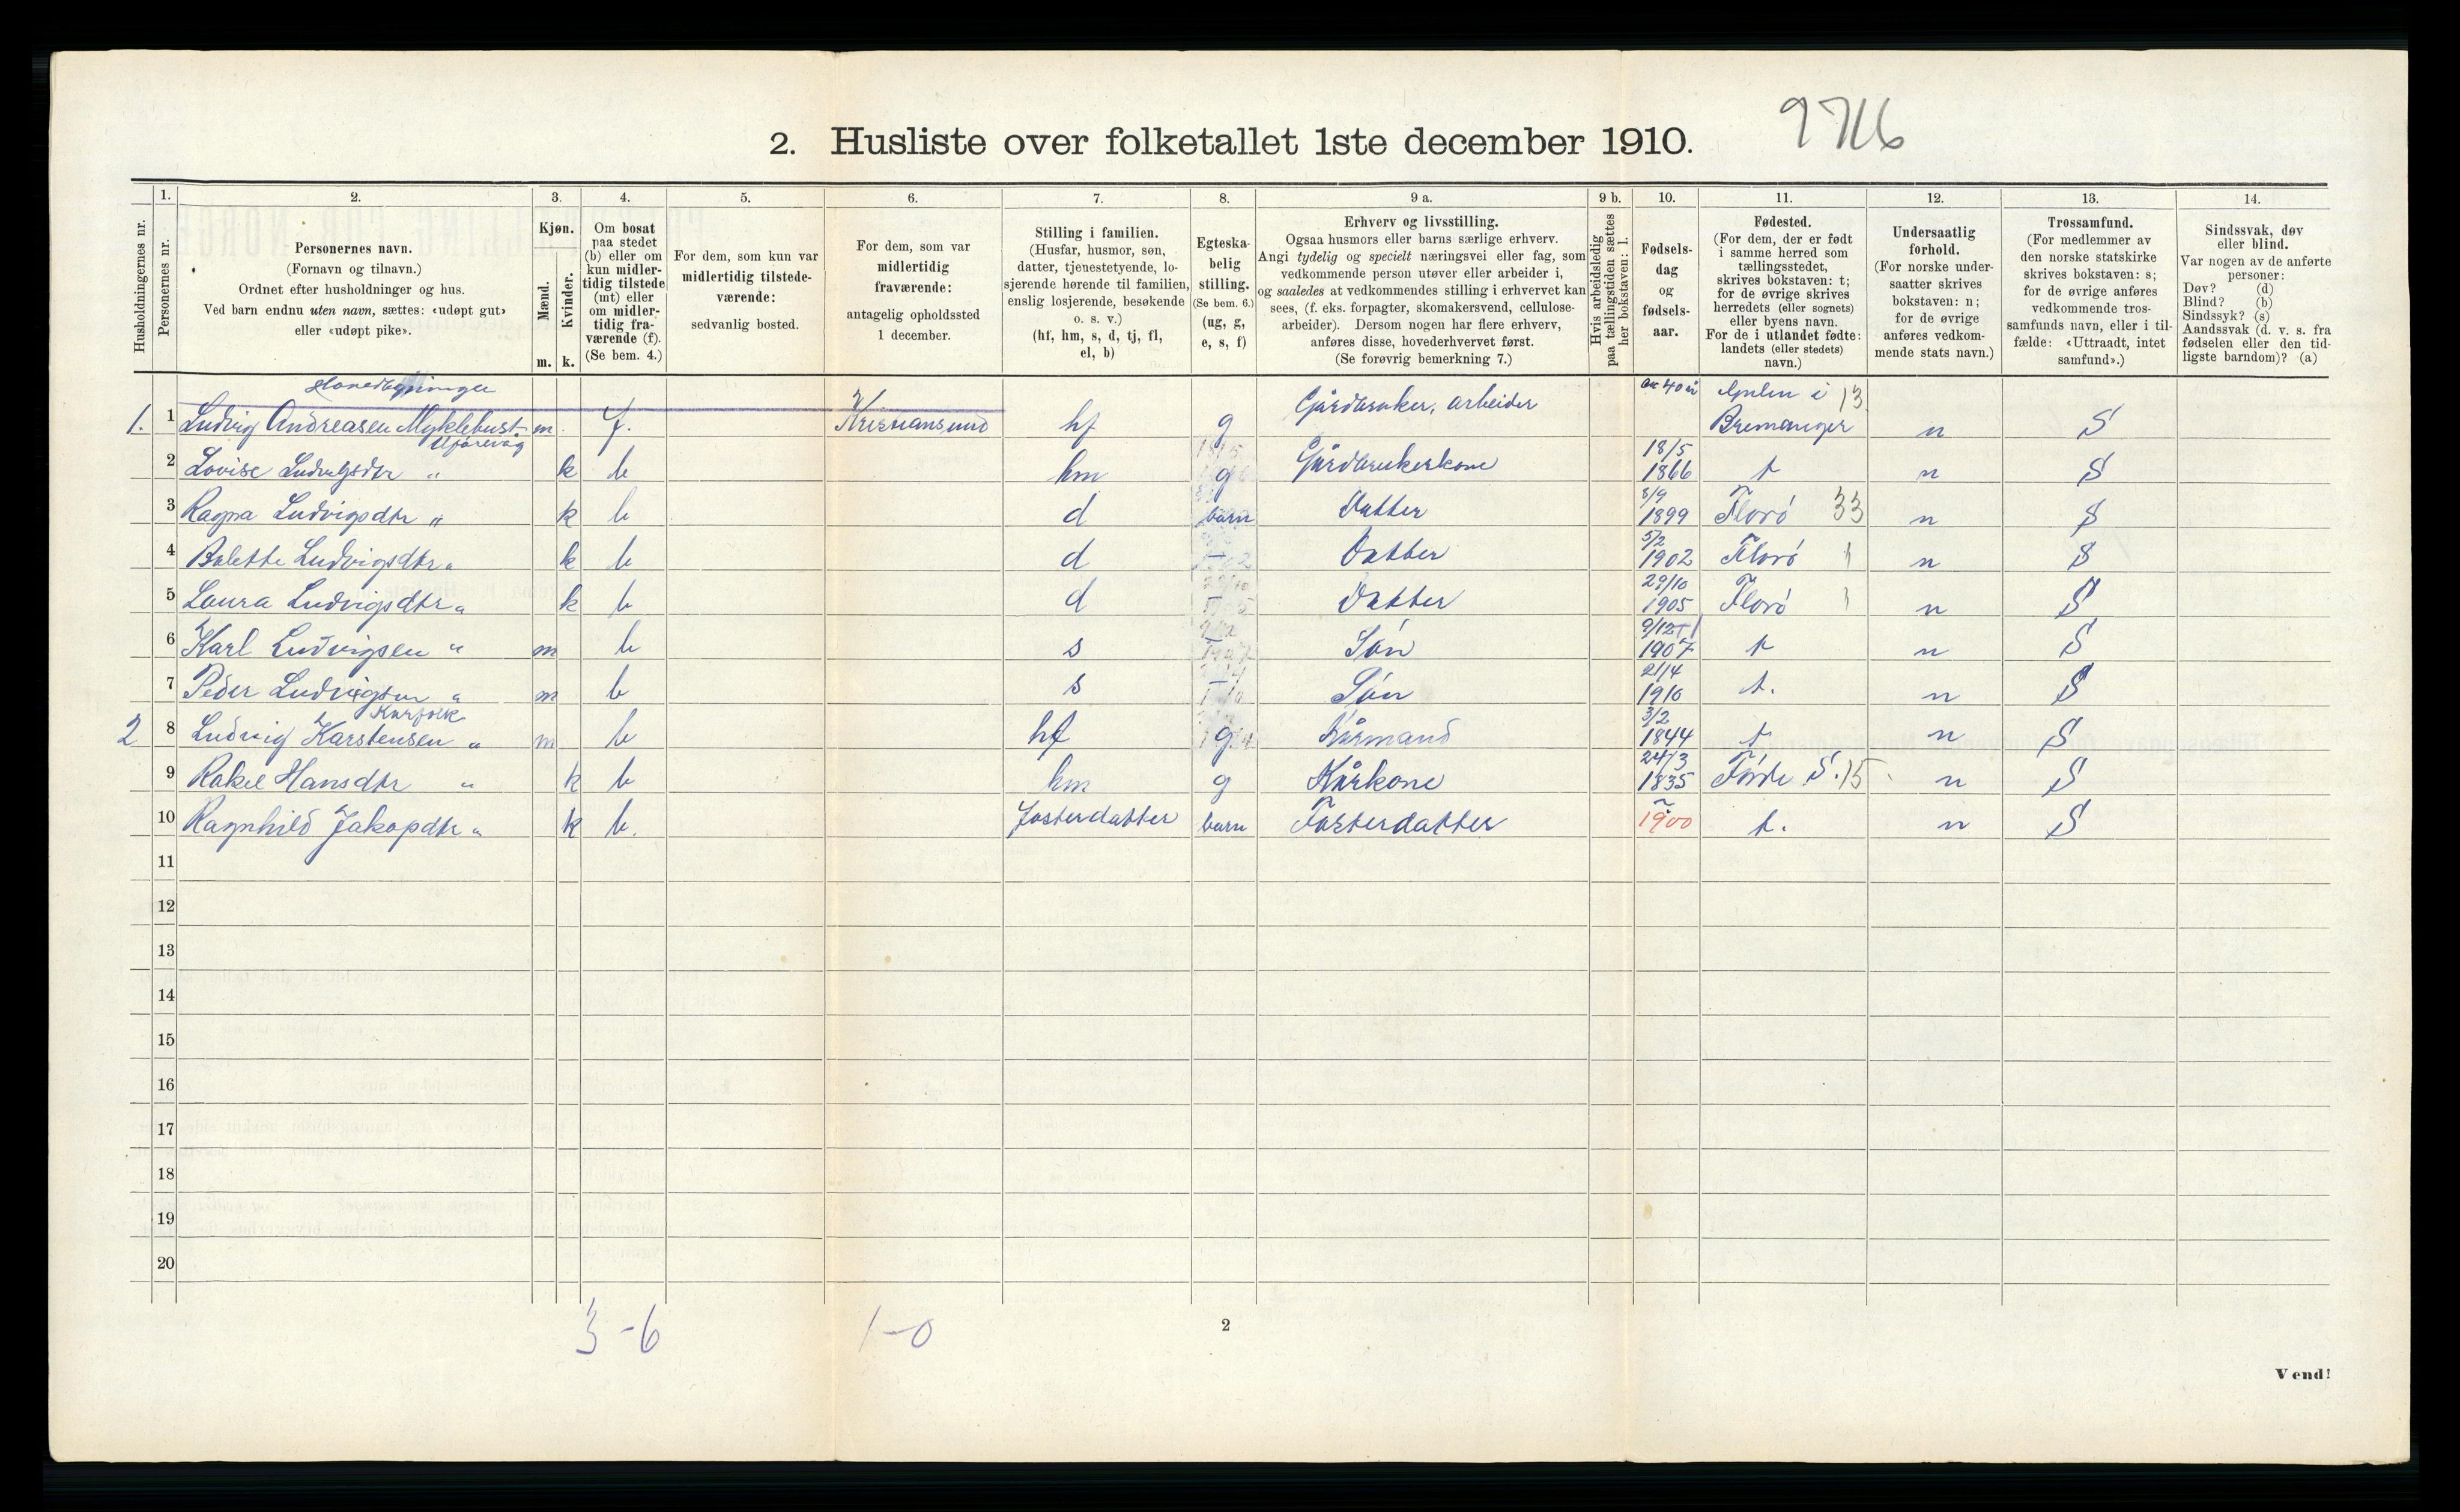 2. Husliste over folketallet 1ste december 1910. 9716
Husholdningernes nr.
1. Personernes nr.
2. Personernes navn.
(Fornavn og tilnavn.)
Ordnet efter husholdninger og hus.
Ved barn endnu uten navn, sættes: «udøpt gut»
eller «udøpt pike».
3. Kjøn.
Mænd. m.
Kvinder. k.
4. Om bosat
paa stedet
(b) eller om
kun midler-
tidig tilstede
(mt) eller
om midler-
tidig fra-
værende (f).
(Se bem. 4.)
5. For dem, som kun var
midlertidig tilstede-
værende:
sedvanlig bosted.
6. For dem, som var
midlertidig
fraværende:
antagelig opholdssted
1 december.
7. Stilling i familien.
(Husfar, husmor, søn,
datter, tjenestetyende, lo-
sjerende hørende til familien,
enslig losjerende, besøkende
o. s. v.)
(hf, hm, s, d, tj, fl,
el, b)
8. Egteska-
belig
stilling.
(Se bem. 6.)
(ug, g,
e, s, f)
9 a. Erhverv og livsstilling.
Ogsaa husmors eller barns særlige erhverv.
Angi tydelig og specielt næringsvei eller fag, som
vedkommende person utøver eller arbeider i,
og saaledes at vedkommendes stilling i erhvervet kan
sees, (f. eks. forpagter, skomakersvend, cellulose-
arbeider). Dersom nogen har flere erhverv,
anføres disse, hovederhvervet først.
(Se forøvrig bemerkning 7.)
9 b. Hvis arbeidsledig
paa tællingstiden sættes
her bokstaven: l.
10. Fødsels-
dag
og
fødsels-
aar.
11. Fødested.
(For dem, der er født
i samme herred som
tællingsstedet,
skrives bokstaven: t;
for de øvrige skrives
herredets (eller sognets)
eller byens navn.
For de i utlandet fødte:
landets (eller stedets)
navn.)
12. Undersaatlig
forhold.
(For norske under-
saatter skrives
bokstaven: n;
for de øvrige
anføres vedkom-
mende stats navn.)
13. Trossamfund.
(For medlemmer av
den norske statskirke
skrives bokstaven: s;
for de øvrige anføres
vedkommende tros-
samfunds navn, eller i til-
fælde: «Uttraadt, intet
samfund».)
14. Sindssvak, døv
eller blind.
Var nogen av de anførte
personer:
Døv? (d)
Blind? (b)
Sindssyk? (s)
Aandssvak (d. v. s. fra
fødselen eller den tid-
ligste barndom)? (a)
1. 1 Ludvig Andreasen Myklebust m. f. Kristiansund hf g Gårdbruker, arbeider 40 år i Bremanger 13 n S
2 Lovise Ludvigsdtr " k b hm g Gårdbrukerkone 18/5 1866 t n S
3 Ragna Ludvigsdtr " k b d barn Datter 8/9 1899 Florö 33 n S
4 Bolette Ludvigsdtr " k b d Datter 5/2 1902 Florö n S
5 Laura Ludvigsdtr " k b d Datter 29/10 1905 Florö n S
6 Karl Ludvigsen " m b s Sön 9/12 1907 t n S
7 Peder Ludvigsen " m b s Sön 21/4 1910 t. n S
Kårfolk
2 8 Ludvig Karstensen " m b hf g Kårmand 3/2 1844 t n S
9 Rakel Hansdtr " k b hm g Kårkone 24/3 1835 Förde S. 15 n S
10 Ragnhild Jakopdtr " k b. fosterdatter barn Fosterdatter 1900 t. n S
11
12
13
14
15
16
17
18
19
20
3-6 1-0
2
Vend!